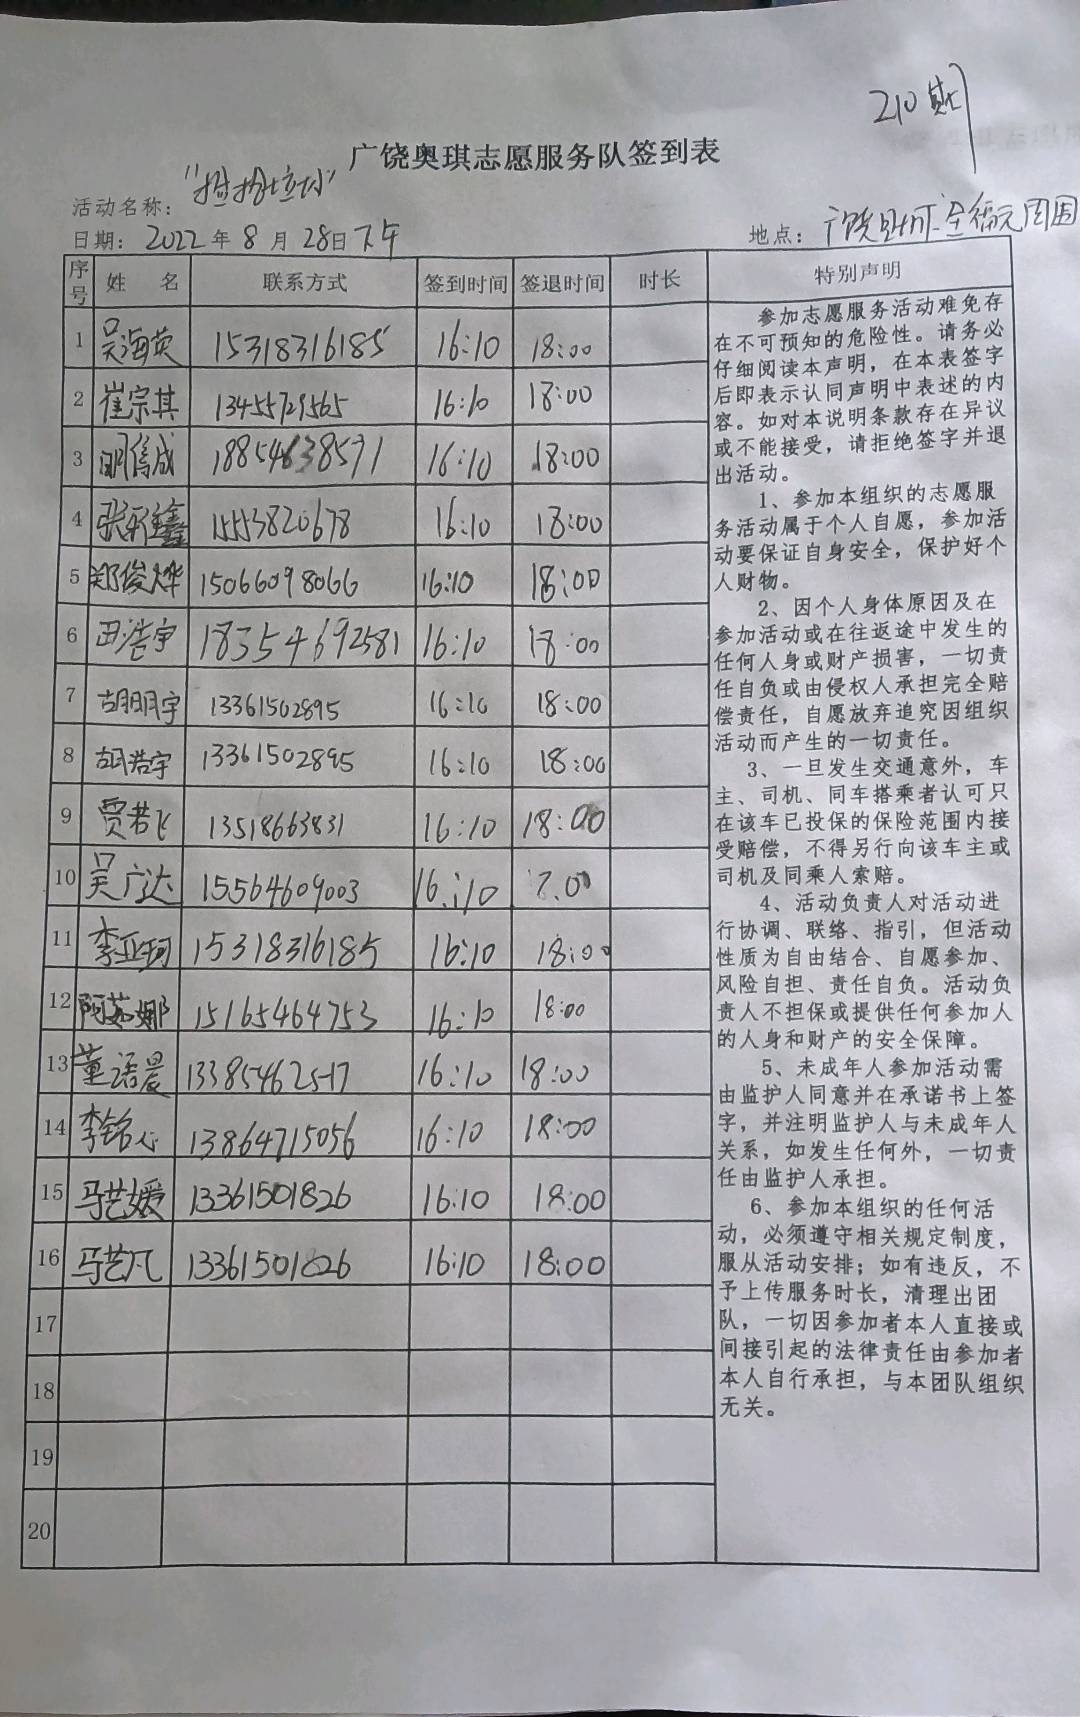 210期
广饶奥琪志愿服务队签到表
活动名称："捡拾垃圾"
日期：2022年8月28日下午 地点：广饶 全福元周围
序号 姓 名 联系方式 签到时间 签退时间 时长 特别声明
1 吴海英 15318316185 16:10 18:00
2 崔宗其 13455729565 16:10 18:00
3 明信成 18854638571 16:10 18:00
4 张 鑫 15553820678 16:10 18:00
5 郑俊烨 15066098066 16:10 18:00
6 田浩宇 18354692581 16:10 18:00
7 胡明宇 13361502895 16:10 18:00
8 胡浩宇 13361502895 16:10 18:00
9 贾若飞 13518663831 16:10 18:00
10 吴广达 15564609003 16:10
11 李亚珂 15318316185 16:10 18:00
12 阿茹娜 15165464753 16:10 18:00
13 董语晨 13385462517 16:10 18:00
14 李铭心 13864715056 16:10 18:00
15 马艺媛 13361501826 16:10 18:00
16 马艺凡 13361501826 16:10 18:00
17
18
19
20
参加志愿服务活动难免存
在不可预知的危险性。请务必
仔细阅读本声明，在本表签字
后即表示认同声明中表述的内
容。如对本说明条款存在异议
或不能接受，请拒绝签字并退
出活动。
1、参加本组织的志愿服
务活动属于个人自愿，参加活
动要保证自身安全，保护好个
人财物。
2、因个人身体原因及在
参加活动或在往返途中发生的
任何人身或财产损害，一切责
任自负或由侵权人承担完全赔
偿责任，自愿放弃追究因组织
活动而产生的一切责任。
3、一旦发生交通意外，车
主、司机、同车搭乘者认可只
在该车已投保的保险范围内接
受赔偿，不得另行向该车主或
司机及同乘人索赔。
4、活动负责人对活动进
行协调、联络、指引，但活动
性质为自由结合、自愿参加、
风险自担、责任自负。活动负
责人不担保或提供任何参加人
的人身和财产的安全保障。
5、未成年人参加活动需
由监护人同意并在承诺书上签
字，并注明监护人与未成年人
关系，如发生任何外，一切责
任由监护人承担。
6、参加本组织的任何活
动，必须遵守相关规定制度，
服从活动安排；如有违反，不
予上传服务时长，清理出团
队，一切因参加者本人直接或
间接引起的法律责任由参加者
本人自行承担，与本团队组织
无关。